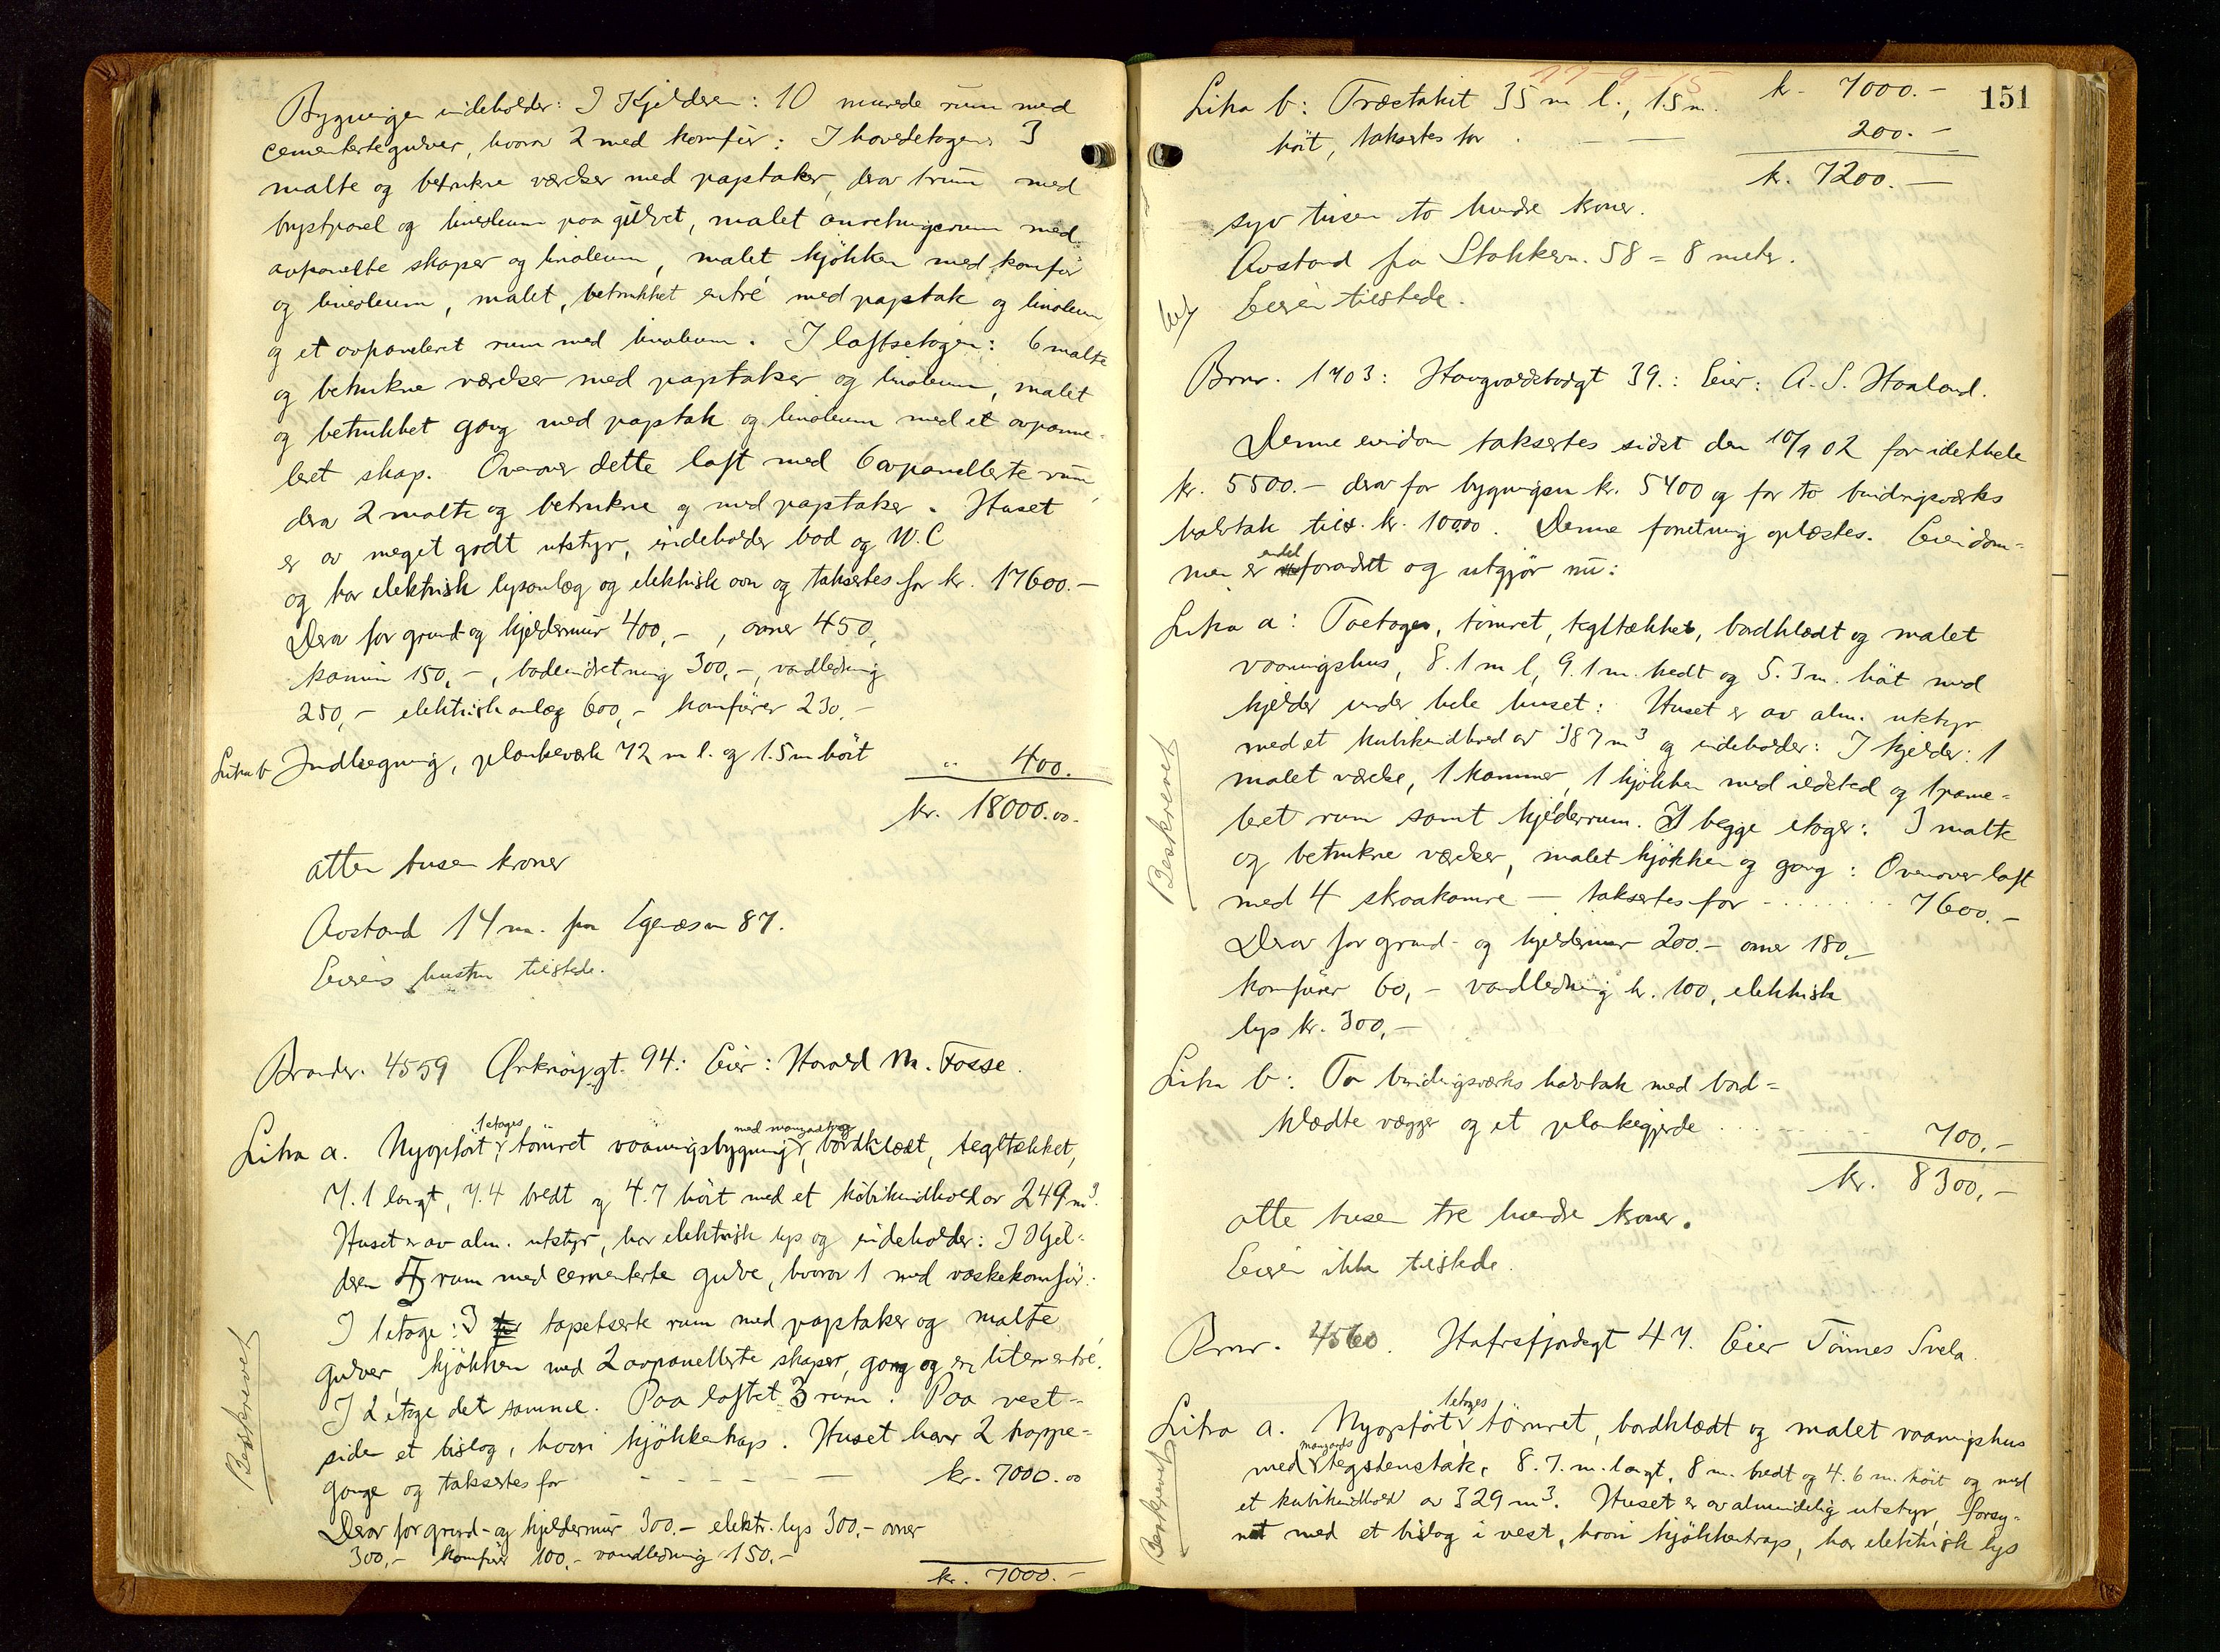 Bygningen indeholder: I Kjelderen: 10 murede rum med
cementerte gulver, hvorav 2 med komfür: I hovedetagen 3
malte og betrukne værelser med paptaker, derav 1 rum med
brystpanel og linoleum paa gulvet, malet anretningsrum med
avpanelte skaper og linoleum, malet kjökken med komfür
og linoleum, malet, betrukket entré med paptak og linoleum
og et avpanelert rum med linoleum. I loftsetagen: 6 malte
og betrukne værelser med paptaker og linoleum, malet
og betrukket gang med paptak og linoleum med et avpane-
leret skap. Ovenover dette loft med 6 avpanellerte rum,
derav 2 malte og betrukne og med paptaker. Huset
er av meget godt utstyr, indeholder bad og W.C
og har elektrisk lysanlæg og elektrisk ovn og taksertes for kr. 17600.-
Derav for grund- og kjeldermur 400,-, ovner 450,
kamin 150,-, badeindretning 300,-, vandledning
250,- elektrisk anlæg 600,- komfürer 230.-
Litra b Indhegning, plankeværk 72 m l. og 1.5 m höit " 400.
kr. 18000.00.
atten tusen kroner
Avstand 14 m. fra Egenæsvn 87.
Eierens hustru tilstede.
Brandnr. 4559 Ørknöygt. 94: Eier: Harald M. Fosse.
Litra a. Nyopfört 1 etages tömret vaaningsbygning med mansardtag, bordklædt, tegltækket,
7.1 langt, 7.4 bredt og 4.7 höit med et kubikindhold av 249 m³.
Huset er av alm. utstyr, har elektrisk lys og indeholder: I Kjel-
deren 5 rum med cementerte gulve, hvorav 1 med vaskekomfür.
I 1 etage: 3 tapetserte rum med paptaker og malte
gulver, kjökken med 2 avpanellerte skaper, gang og en liten entré.
I 2 etage det samme. Paa loftet 3 rum. Paa vest-
siden et bislag, hvori kjökkentrap. Huset haver 2 trappe-
gange og taksertes for - - - - - kr. 7000.00
Derav for grund- og kjeldermur 300.- elektr. lys 300,- ovner
300,- komfür 100,- vandledning 150.-
kr. 7000.-
Beskrevet
151
17-9-15
kr. 7000.-
Litra b: Træstakit 35 m l., 1.5 m.
höit, taksertes for . - - 200.-
kr. 7200.-
syv tusen to hundre kroner.
Avstand fra Stokkavn. 58 = 8 meter.
Eieren tilstede.
Brnr. 1403: Haugvaldstadgt 39.: Eier: A. S. Haaland.
Denne eiendom taksertes sidst den 10/9 02 for idethele
kr. 5500.- derav for bygningen kr. 5400 og for to bindingsværks
halvtak tils. kr. 100.00. Denne forretning oplæstes. Eiendom-
men er endel forandret og utgjör nu:
Litra a: Toetages, tömret, tegltækket, bordklædt og malet
vaaningshus, 8.1 m l, 9.1 m. bredt og 5.3 m. höit med
kjelder under hele huset: Huset er av alm. utstyr
med et kubikindhold av 387 m³ og indeholder: I kjelder: 1
malet værelse, 1 kammer, 1 kjökken med ildsted og 1 pane-
leret rum samt kjelderrum. I begge etager: 3 malte
og betrukne værelser, malet kjökken og gang: Ovenover loft
med 4 skraakamre — taksertes for - ....... 7600.-
Derav for grund- og kjeldermur 200.- ovner 180,-
komfürer 60,- vandledning kr. 100, elektrisk
lys kr. 300,-
Litra b: To bindingsværks halvtak med bord-
klædte vægger og et plankegjerde ....... 700.-
kr. 8300,-
otte tusen tre hundre kroner.
Eieren ikke tilstede.
Brnr. 4560. Hafrsfjordsgt 47. Eier Tönnes Svela.
Litra a. Nyopfört 1 etages tömret, bordklædt og malet vaaningshus
med mansards teglstenstak, 8.7. m. langt, 8 m. bredt og 4.6 m. höit og med
et kubikindhold av 329 m³. Huset er av almindelig utstyr, forsy-
net med et bislag i vest, hvori kjökkentrap, har elektrisk lys
Beskrevet
Beskrevet